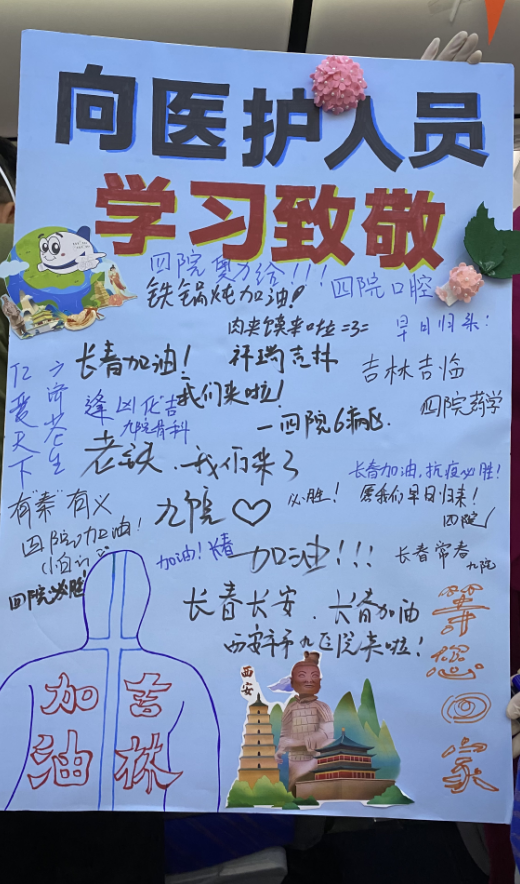 向医护人员
学习致敬
四院奥力给!!!
铁锅炖加油!
四院口腔
肉夹馍来啦=3=
早日归来:
长春加油!
祥瑞吉林
吉林吉临
我们来啦!
四院药学
仁爱天下
方济苍生
逢凶化吉
九院骨科
一四院6病区
老铁.我们来了
长春加油,抗疫必胜!
愿我们早日归来!
四院
有"秦"有义
四院加油!
九院♡
必胜!
四院必胜
加油!长春
加油!!!
长春常春
九院
长春长安.长春加油
西安市第九医院来啦!
等您回家
西安
吉林
加油